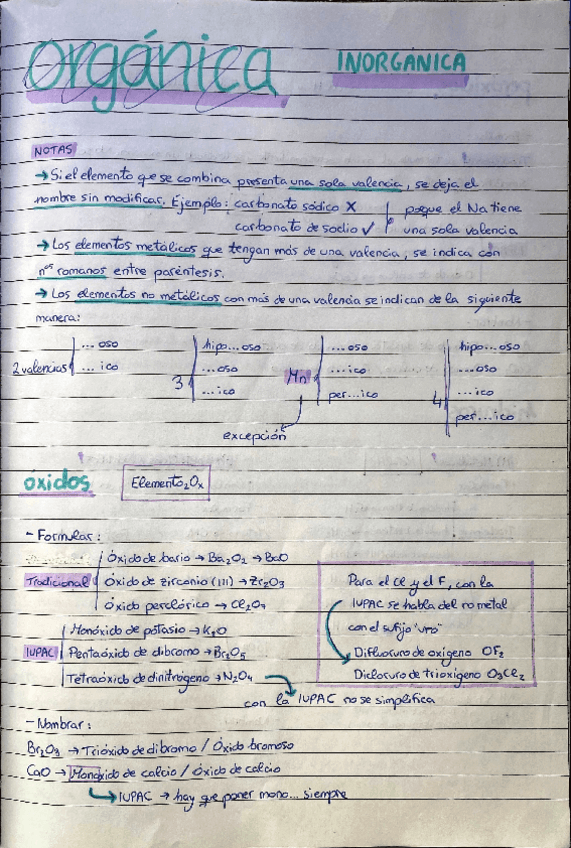 orgánica INORGANICA
NOTAS
→ Si el elemento que se combina presenta una sola valencia, se deja el
nombre sin modificar. Ejemplo: carbonato sódico X porque el Na tiene
carbonato de sodio ✓ una sola valencia
→ Los elementos metálicos que tengan más de una valencia, se indica con
nos romanos entre paréntesis.
→ Los elementos no metálicos con más de una valencia se indican de la siguiente
manera:
2 valencias ...oso
...ico
3 hipo...oso
...oso
...ico
Mn ...oso
...ico
per...ico
excepción
4 hipo...oso
...oso
...ico
per...ico
óxidos Elemento₂Oₓ
- Formular:
Tradicional
Óxido de bario → Ba₂O₂ → BaO
Óxido de zirconio (III) → Zr₂O₃
Óxido perclórico → Cl₂O₇
IUPAC
Monóxido de potasio → K₂O
Pentaóxido de dibromo → Br₂O₅
Tetraóxido de dinitrógeno → N₂O₄
con la IUPAC no se simplifica
Para el Cl y el F, con la
IUPAC se habla del no metal
con el sufijo "uro"
Difluoruro de oxígeno OF₂
Dicloruro de trioxígeno O₃Cl₂
- Nombrar:
Br₂O₃ → Trióxido de dibromo / Óxido bromoso
CaO → Monóxido de calcio / Óxido de calcio
IUPAC → hay que poner mono... siempre